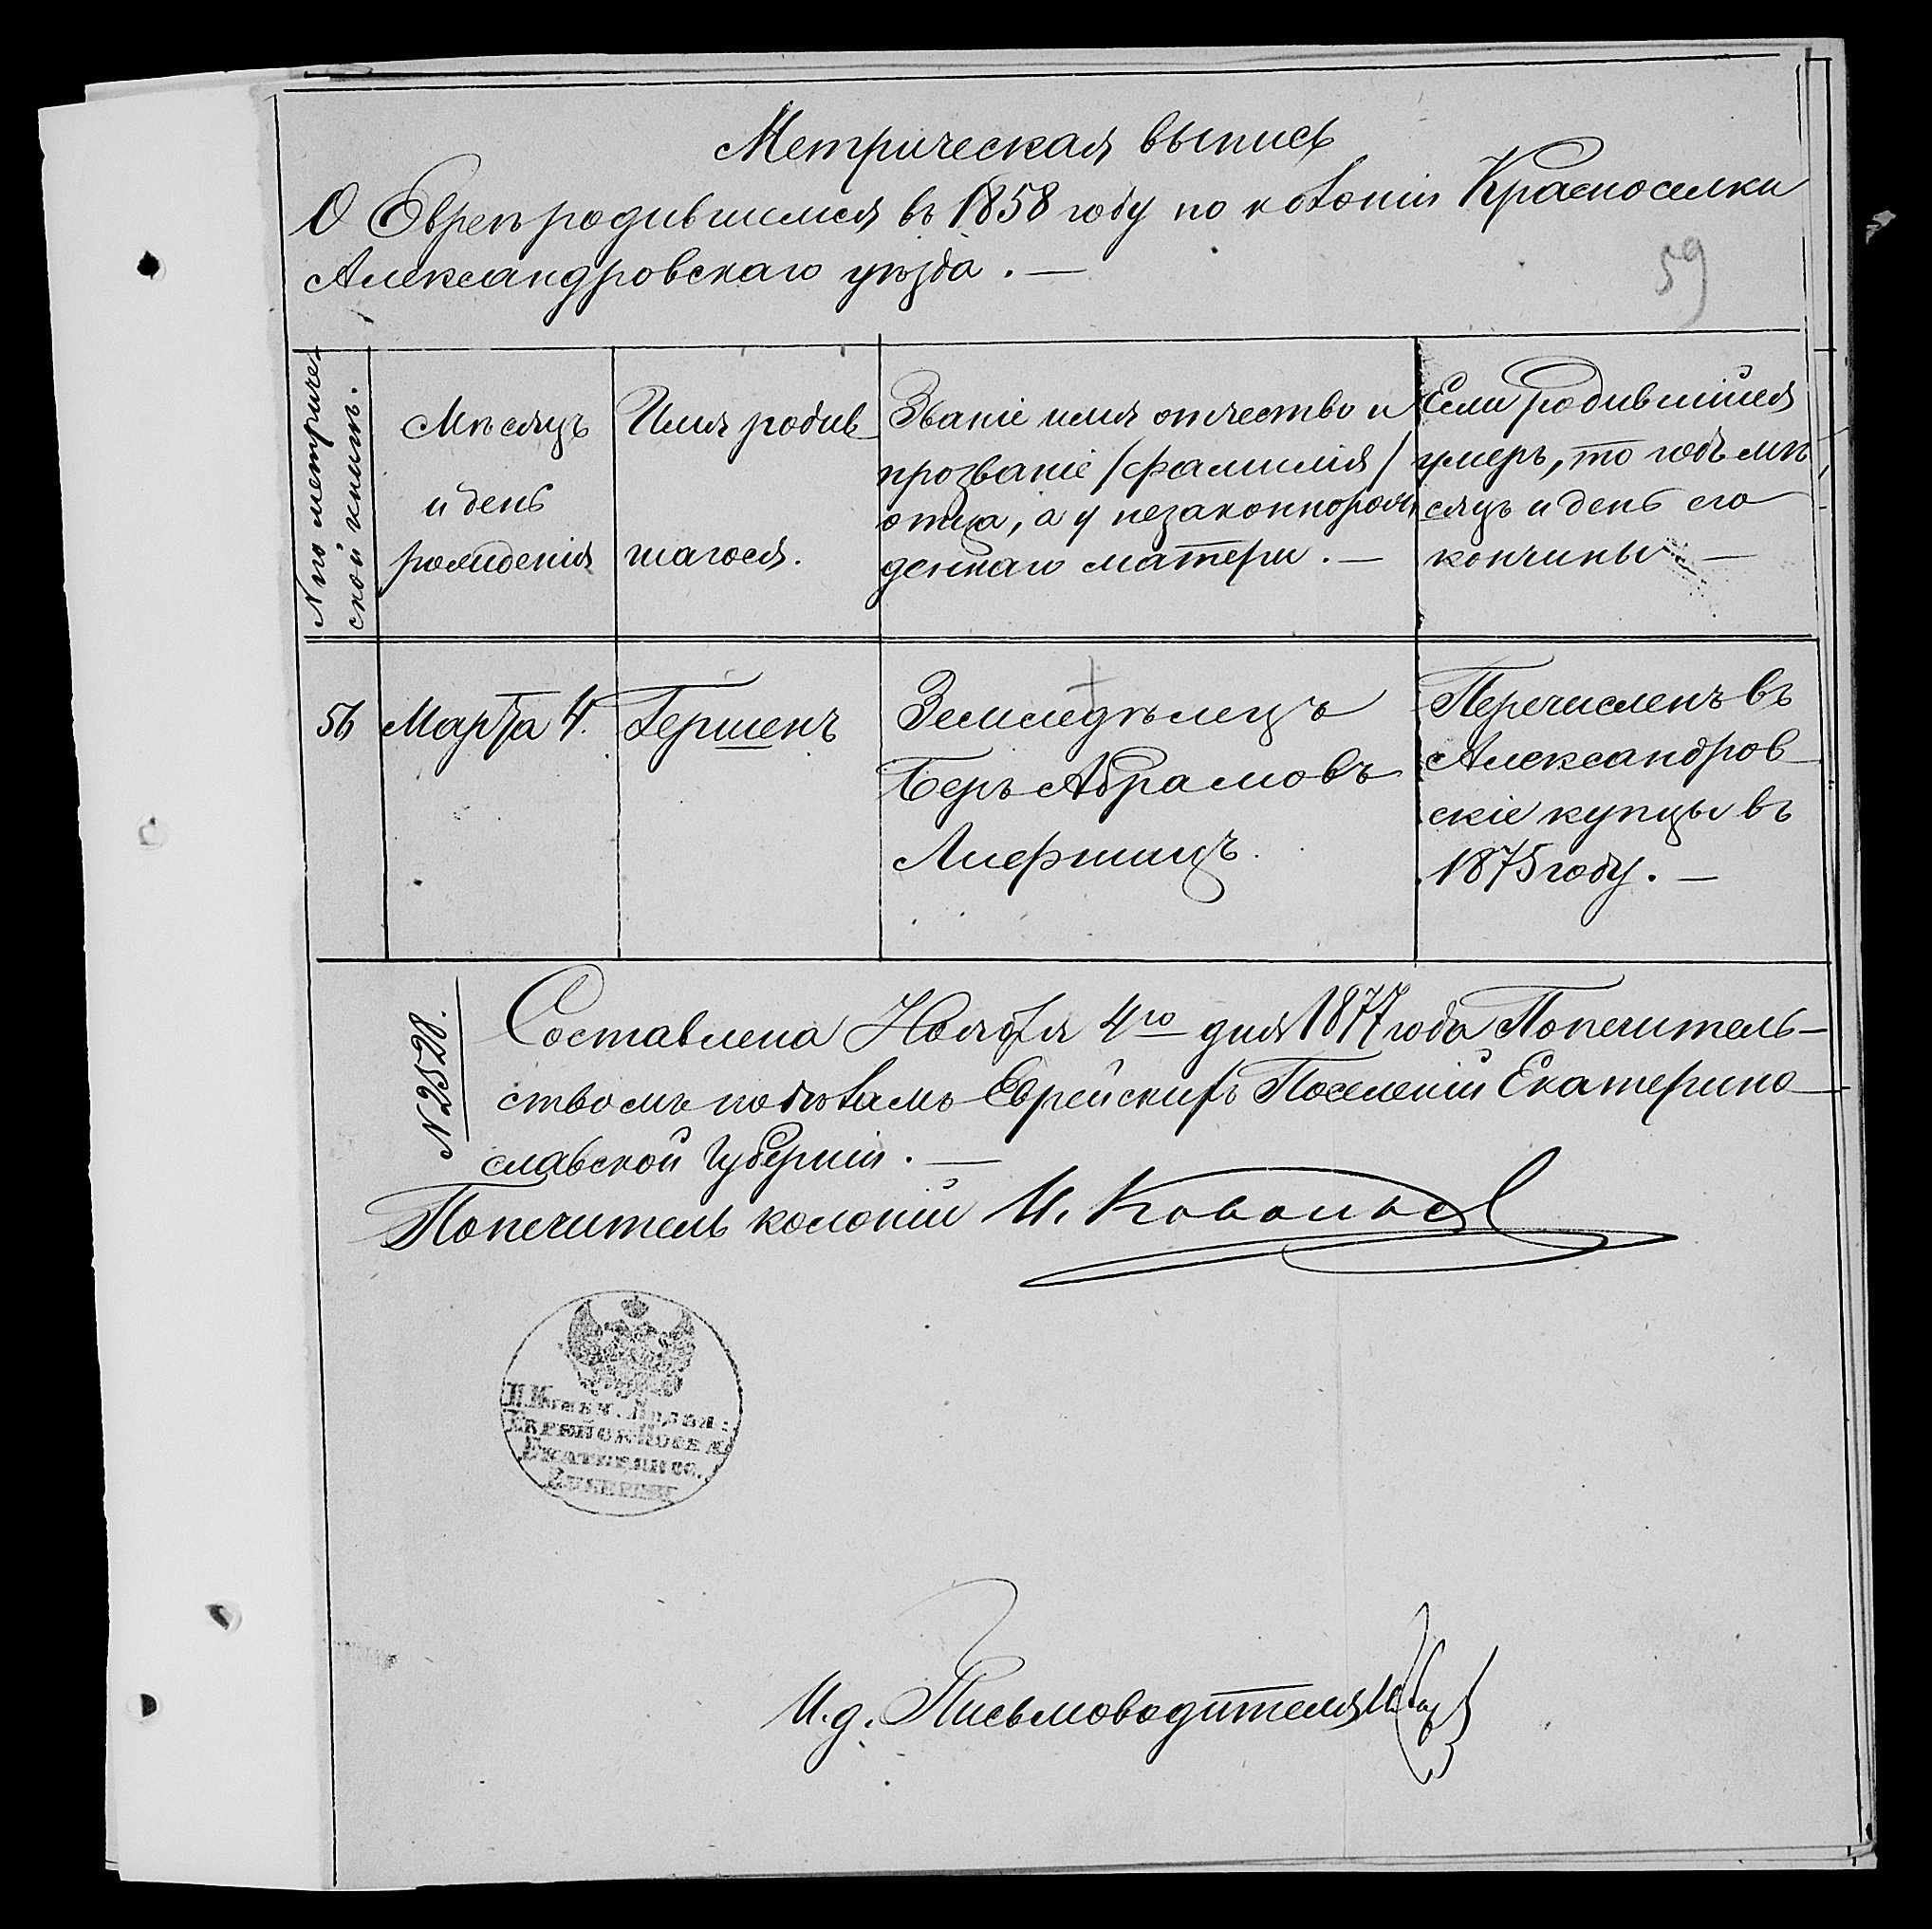 Метрическая выпись
О Евреѣ родившимся въ 1858 году по колоніи Красноселки
Александровскаго уѣзда. —
59
№ по метриче-
ской книгѣ.
Мѣсяцъ
и день
рожденія
Имя родив-
шагося.
Званіе имя отчество и
прозваніе /фамилія/
отца, а у незаконнорож-
деннаго матери. —
Если родившійся
умеръ, то годъ мѣ-
сяцъ и день его
кончины —
56
Марта 4.
Гершенъ
Земледѣлецъ
Беръ Абрамовъ
Лифшицъ.
Перечисленъ въ
Александров-
скіе купцы въ
1875 году. —
№ 2528.
Составлена Ноября 4го дня 1877 года Попечитель-
ствомъ по дѣламъ Еврейскихъ Поселеній Екатерино-
славской Губерніи. —
Попечитель колоній И.
Еврейск. Посел.
Екатериносл.
Губерніи
И.д. Письмоводителя